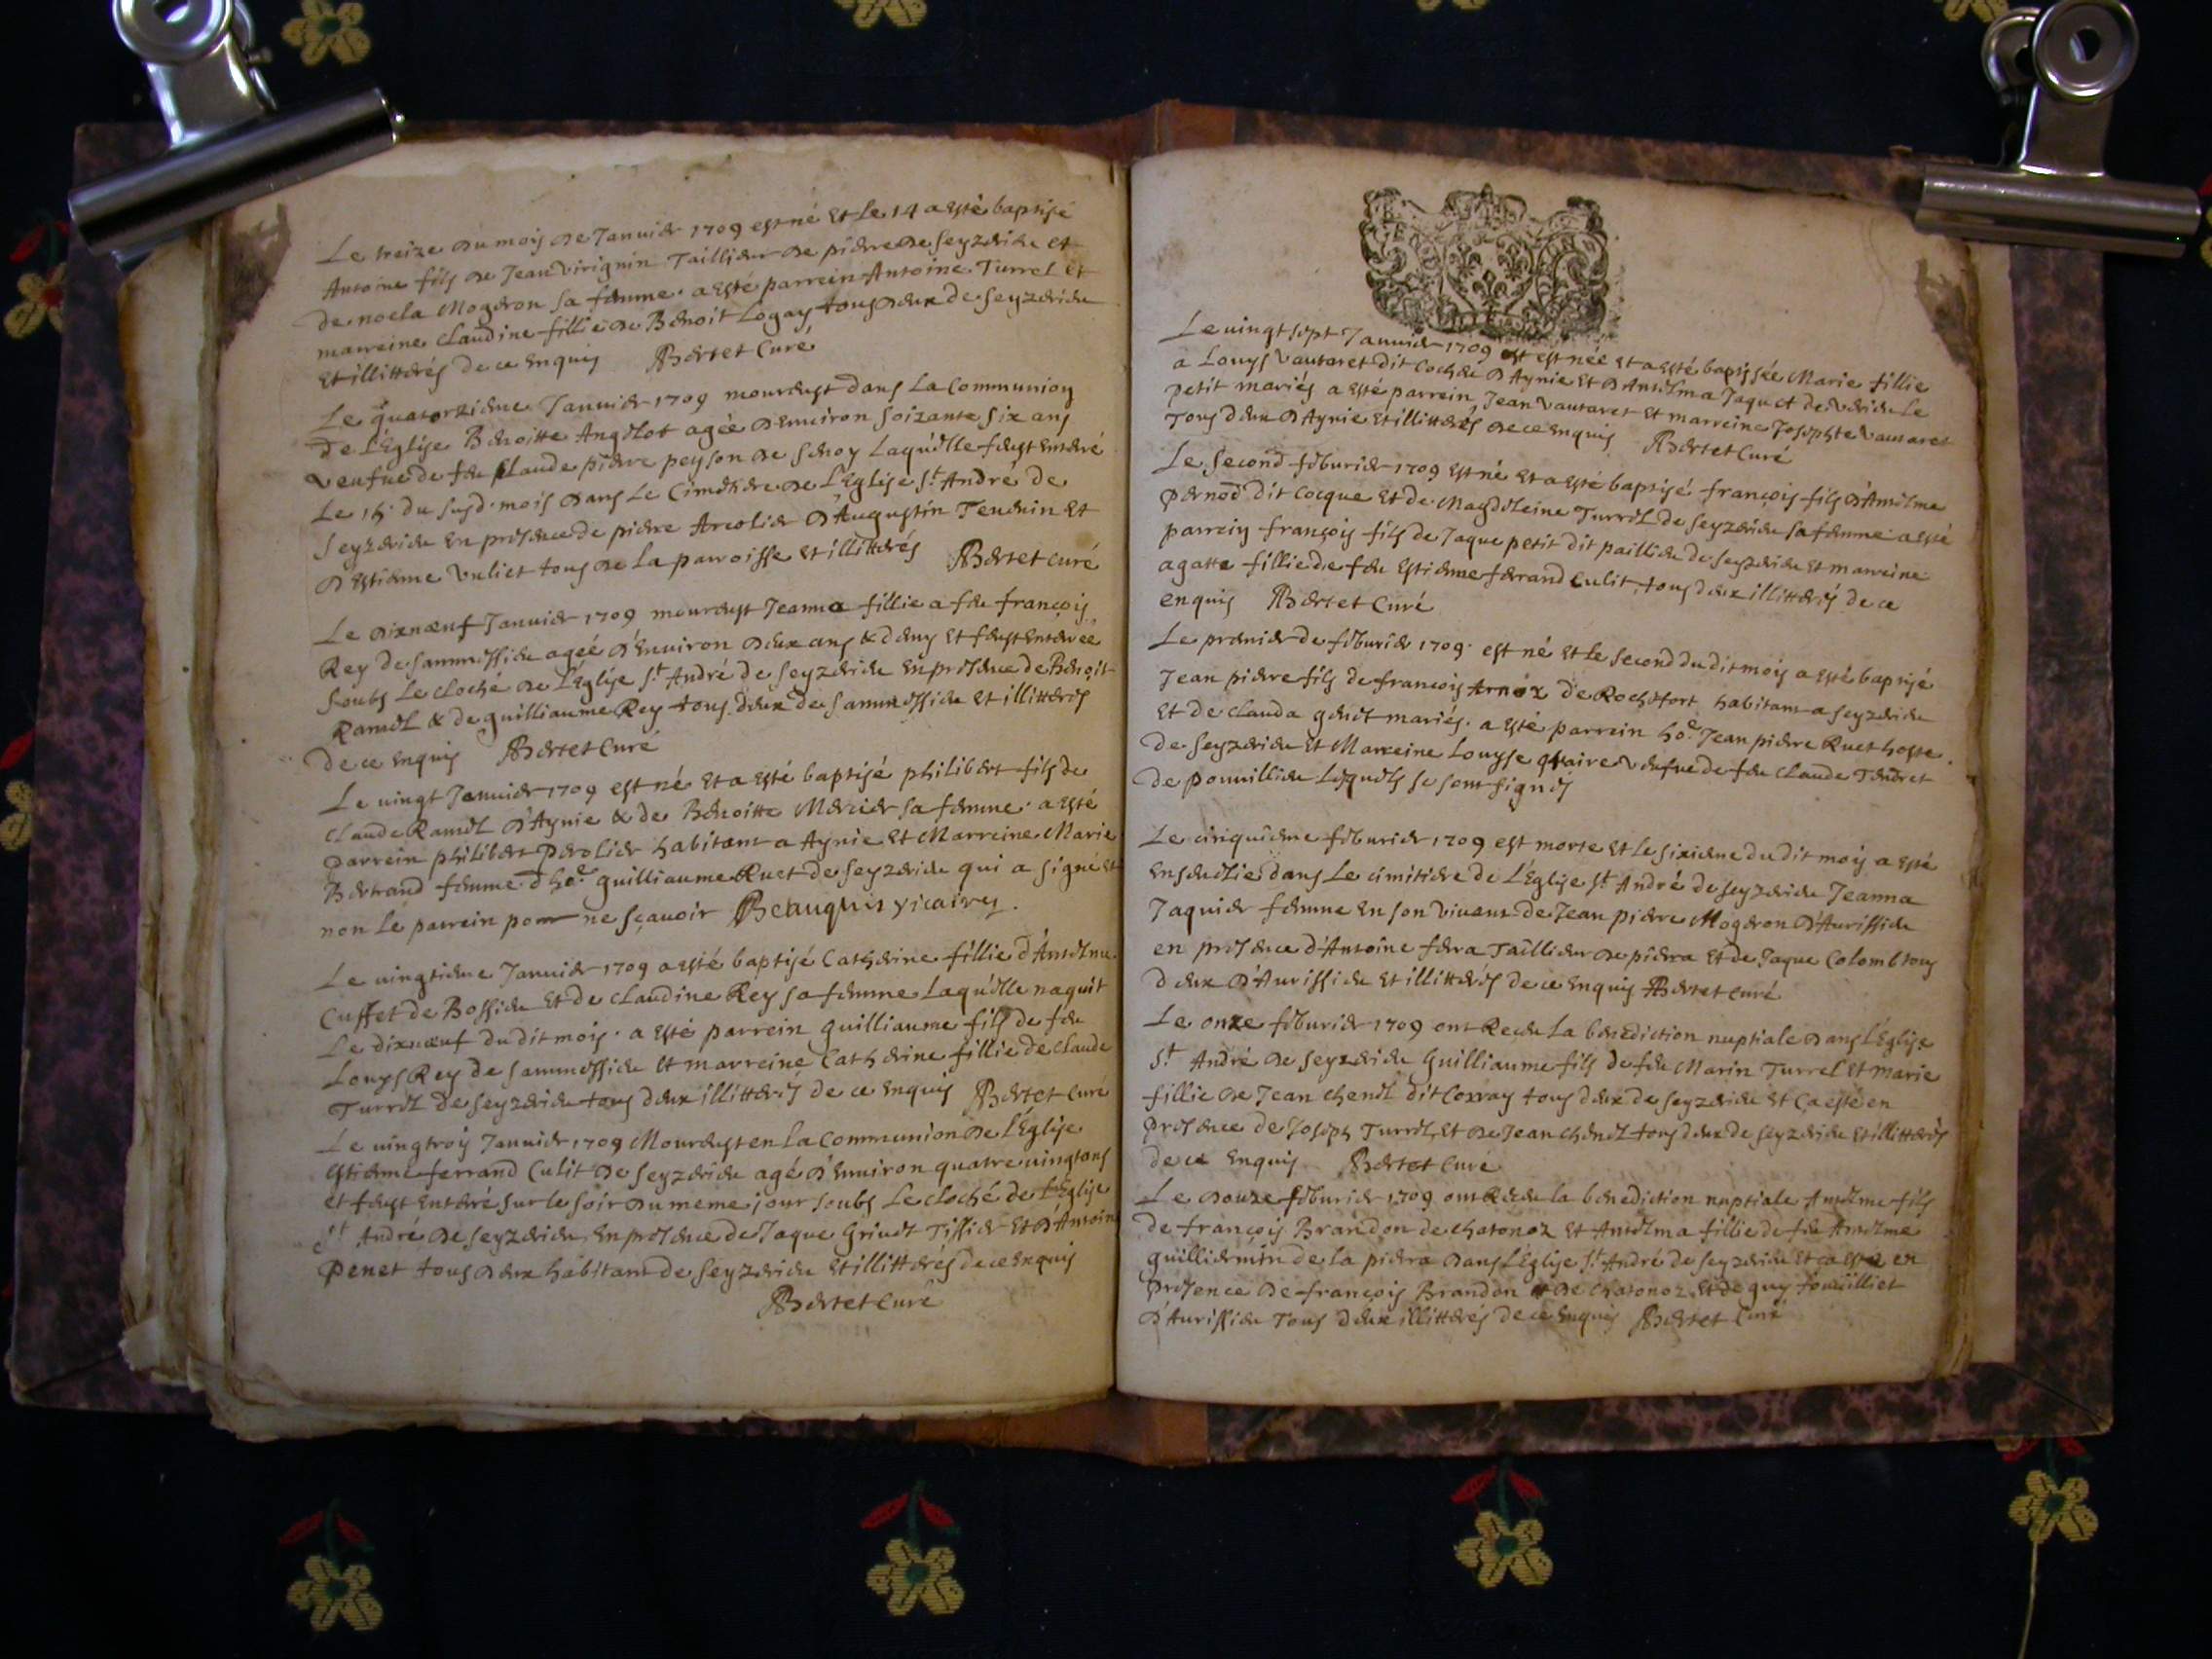 Le treize du mois de Januier 1709 est né Et le 14 a esté baptisé
Antoine fils de Jean Virignin Taillieur de pierre de Seyzerieu et
de noela Mogeron sa femme. a esté parrein Antoine Turrel et
marreine Claudine fillie de Benoit Logay tous deux de Seyzerieu
Et illitterés de ce Enquis Bertet Curé
Le quatorzieme Januier 1709 mourust dans la Communion
de L'Eglise Benoitte Angelot agée d'Enuiron soizante six ans
veufue de feu Claude pierre peyson de Laquelle feust Enterré
Le 15. du susd. mois dans Le Cimetiere de L'Eglise St. André de
Seyzerieu En presence de pierre d'Augustin Tendrin Et
d'Estienne Vuliet tous de la parroisse Et illitterés Bertet curé
Le dixnœuf Januier 1709 mourust Jeanna fillie a feu françois
Rey de Sammessieu agée d'Enuiron deux ans & demy Et feust Enterrée
soubs Le cloché de L'Eglise St. André de Seyzerieu En presence de Benoit
Ramel & de guilliaume Rey tous deux de Sammessieu Et illitterés
de ce Enquis Bertet Curé
Le uingt Januier 1709 est né Et a esté baptisé philibert fils de
Claude Ramel d'Aynie & de Benoitte Mercier sa femme. a esté
parrein philibert Perolier habitant a Aynie Et Marreine Marie
Bertrand femme d'he. guilliaume Ruet de Seyzerieu qui a signé Et
non Le parrein pour ne sçauoir Beauquis vicaires.
Le uingtieme Januier 1709 a esté baptisé Catherine fillie d'Antelme
Cuffet de Bossieu Et de Claudine Rey sa femme Laquelle naquit
Le dixnœuf du dit mois. a esté parrein guilliaume fils de feu
Louys Rey de Sammessieu Et marreine Catherine fillie de Claude
Turrel de Seyzerieu tous deux illitterés de ce Enquis Bertet Curé
Le uingtrois Januier 1709 Mourust en la Communion de L'Eglise
Estienne ferrand Culit de Seyzerieu agé d'Enuiron quatre uingt ans
et feust Enterré sur le soir du meme jour soubs Le cloché de L'Eglise
St. André de Seyzerieu, En presence de Jaque Griuet Tissier Et d'Antoine
Penet tous deux habitant de Seyzerieu Et illitterés de ce Enquis
Bertet Curé
Le uingt sept Januier 1709 est née Et a esté baptisée Marie fillie
a Louys Vautaret dit Cochée d'Aynie Et d'Antelma Jaquet de Le
petit mariés a esté parrein Jean Vautaret Et marreine Josephte Vautaret
Tous deux d'Aynie Et illitterés de ce Enquis Bertet Curé
Le Second feburier 1709 Est né Et a esté baptisé françois fils d'Antelme
Pernod dit Cocque Et de Magdeleine Turrel de Seyzerieu sa femme a esté
parrein françois fils de Jaque petit dit paillieu de Seyzerieu Et marreine
agatte fillie de feu Estienne ferrand Culit, tous deux illitterés de ce
enquis Bertet Curé
Le premier de feburier 1709. est né Et le Second du dit mois a esté baptisé
Jean pierre fils de françois Arnóx de Rochefort habitant a Seyzerieu
Et de Clauda mariés. a esté parrein ho.e Jean pierre Ruet hoste
de Seyzerieu Et Marreine Louyse veufue de feu Claude Tendret
de pouuillieu Lesquels se sont signés
Le cinquieme feburier 1709 est morte Et le sixieme du dit mois a esté
Enseuelie dans Le cimitiere de L'Eglise St. André de Seyzerieu Jeanna
Jaquier femme En son viuant de Jean pierre Mogeron d'Aurissieu
en presence d'Antoine ferra Taillieur de pierra Et de Jaque Colomb tous
deux d'Aurissieu Et illitterés de ce Enquis Bertet curé
Le onze feburier 1709 ont Receu La benediction nuptiale dans L'Eglise
St. André de Seyzerieu Guilliaume fils de feu Marin Turrel Et marie
fillie de Jean Chenel dit Coxray tous deux de Seyzerieu Et ça esté en
presence de Joseph Turrel, Et de Jean Chenel tous deux de Seyzerieu Et illitterés
de ce Enquis Bertet Curé
Le douze feburier 1709 ont Receu la benediction nuptiale Antelme fils
de françois Brandon de chatonoz Et Antelma fillie de feu Antelme
guilliermin de la pierra dans L'Eglise St. André de Seyzerieu Et ça esté en
presence de françois Brandon de chatonoz Et de guy fouilliet
d'Aurissieu Tous deux illitterés de ce Enquis Bertet Curé